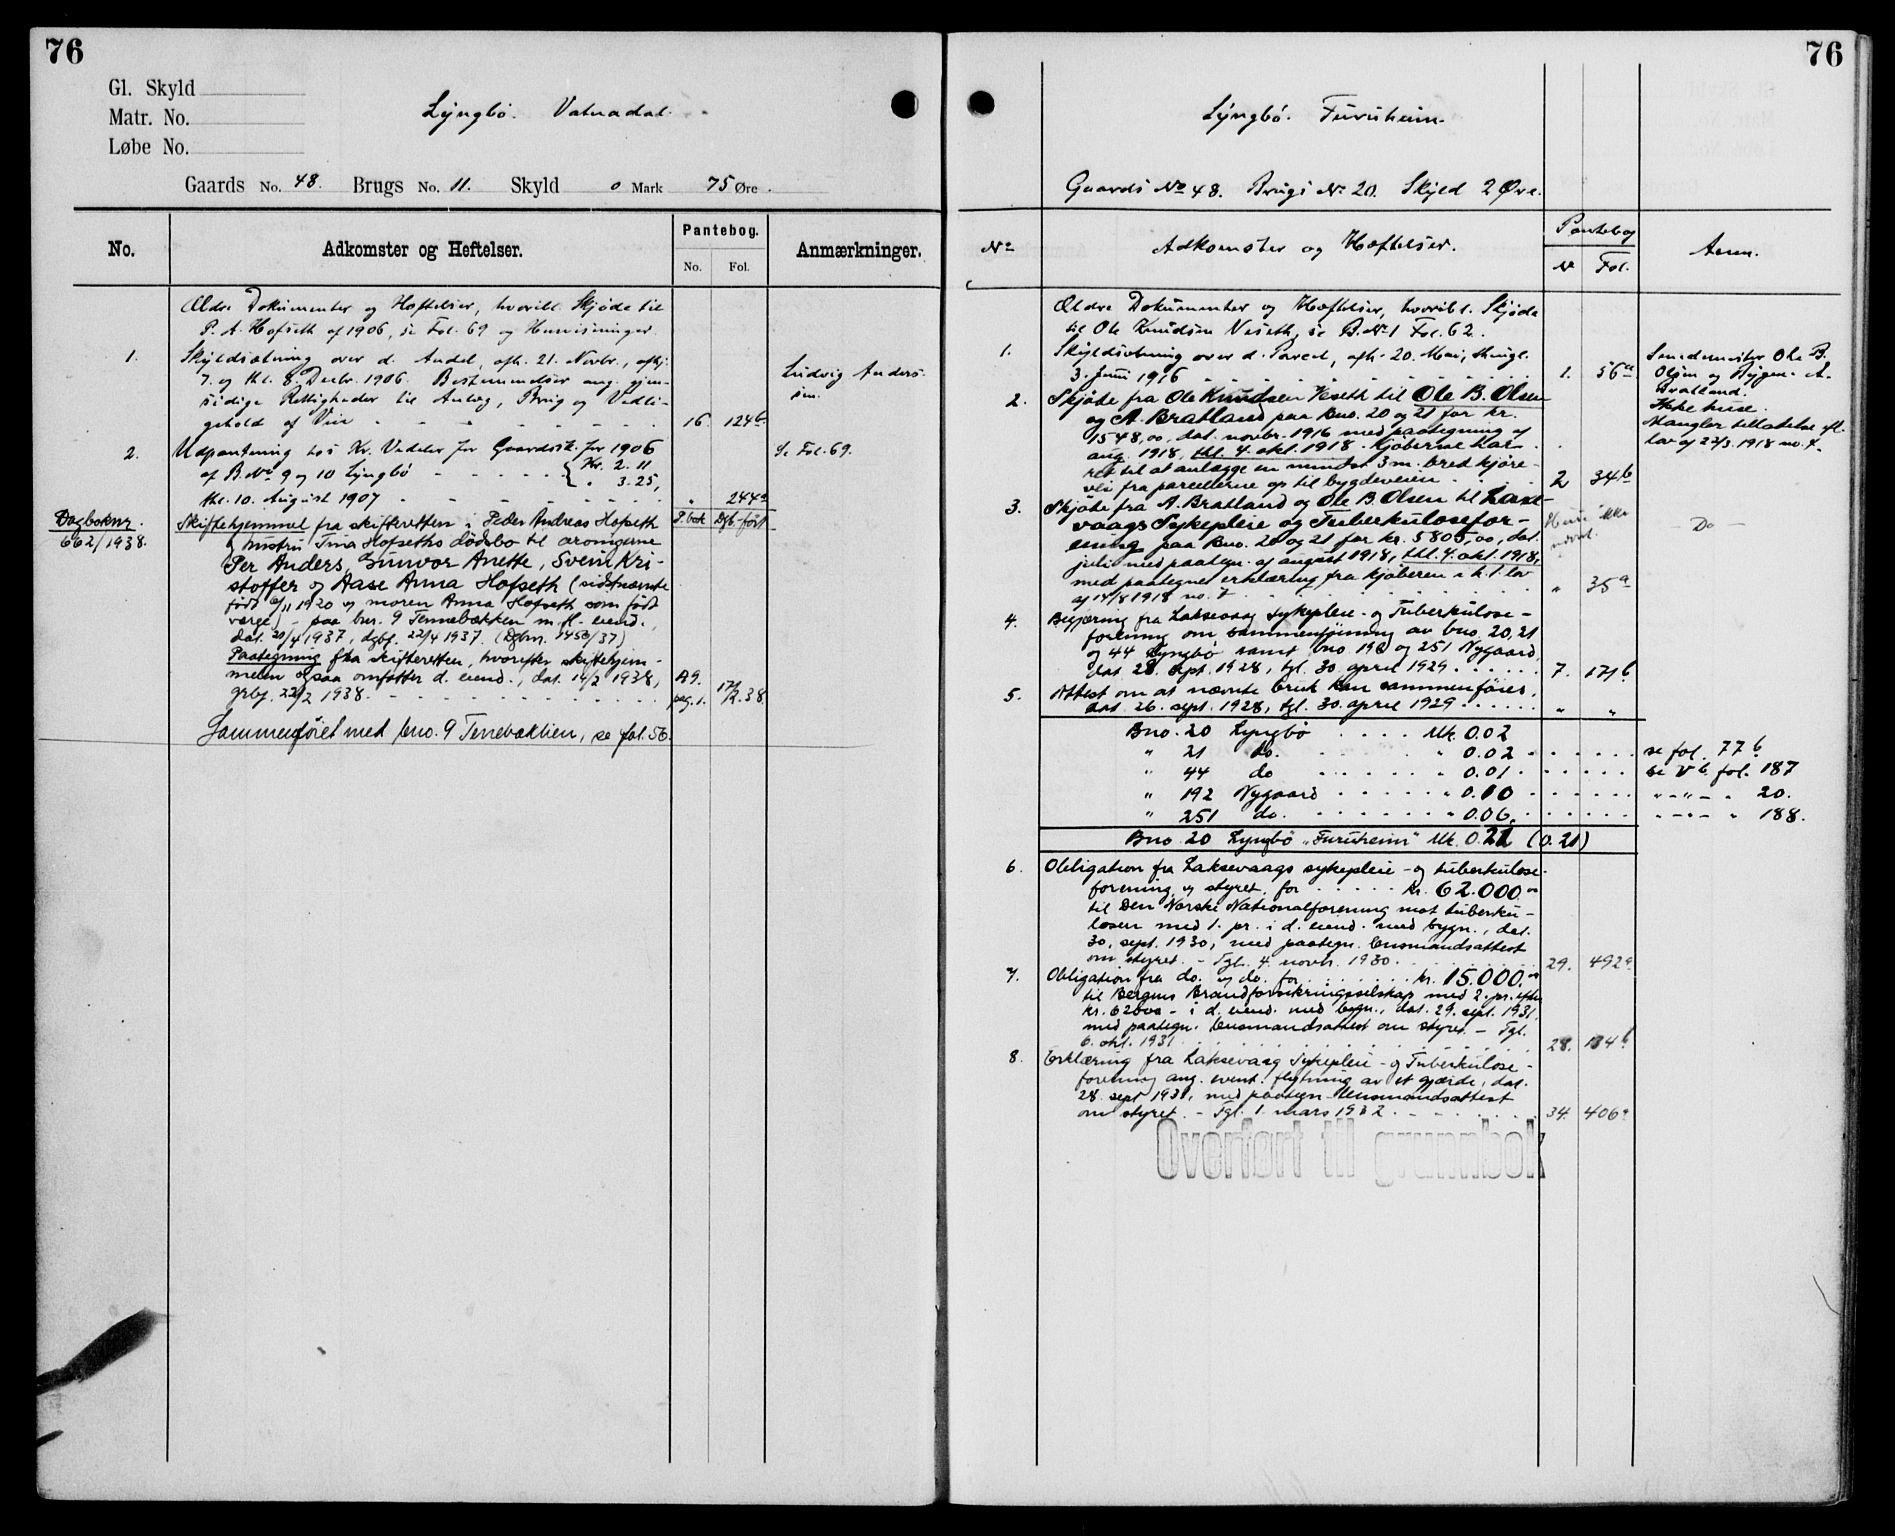 76
Gl. Skyld
Matr. No.
Løbe No.
Lyngbö. Vatnadal.
Gaards No. 48. Brugs No. 11. Skyld 0 Mark 75 Øre.
No. Adkomster og Heftelser. Pantebog. Anmærkninger.
No. Fol.
Ældre Dokumenter og Heftelser, hvoribl. Skjøde til
P. A. Hofseth af 1906, se Fol. 69 og Henvisninger.
1. Skyldsætning over d. Andel, afh. 21. Novbr., afhj.
7. og thl. 8. Decbr. 1906. Bestemmelser ang. gjen-
sidige Rettigheder til Anlæg, Brug og Vedli-
gehold af Vei 16. 124b
Ludvig Anders-
sen.
2. Udpantning hos Kr. Vedeler for Gaardsk. for 1906
af B. No 9 og 10 Lyngbö { Kr. 2.11
" 3.25,
thl. 10. August 1907 " 244a
Se Fol. 69.
Dagboknr.
662/1938.
Skiftehjemmel fra skifteretten i Peder Andreas Hofseth P.bok Dgb.ført
og hustru Tina Hofseths dødsbo til arvingerne
Per Anders, Gunvor Anette, Svein Kri-
stoffer og Aase Anna Hofseth (sidstnævnte
født 6/11 1920 og moren Anna Hofseth som født
verge) - paa bnr. 9 Tennebækken m. fl. eiend.,
dat. 20/4 1937, dgbf. 22/4 1937. (Dgbnr. 1453/37)
Paategning fra skifteretten, hvorefter skiftehjem-
melen ogsaa omfatter d. eiend., dat. 14/2 1938, A9.
grbf. 22/2 1938. pag. 1. 17/2.38.
Sammenføiet med bno. 9 Tennebækken, se fol. 56.
76
Lyngbö. Furuheim.
Gaards No 48. Brugs No 20. Skyld 2 Øre.
No Adkomster og Hæftelser. Pantebog Anm.
No Fol.
Ældre Dokumenter og Hæftelser, hvoribl. Skjøde
til Ole Knudsen Veseth, se B. No 1 Fol. 62.
1. Skyldsætning over d. Parcel, afh. 20. Mai, thingl.
3. Juni 1916 1. 56a
2. Skjøte fra Ole Knudsen Veseth til Ole B. Olsen
og A. Bratland paa Bno. 20 og 21 for kr.
1548,00, dat. novbr. 1916 med paategning af
aug. 1918, thl. 4. okt. 1918. Kjøberne har
ret til at anlægge en mindst 3 m. bred kjøre-
vei fra parcellerne op til bygdeveien 2 34b
Smedemester Ole B.
Olsen og A.
Bratland.
Ikke huse.
Mangler tilladelse efl.
lov af 22/3. 1918 no. 4.
3. Skjøte fra A. Bratland og Ole B. Olsen til Laxe-
vaags Sykepleie og Tuberkulosefor-
ening paa Bno. 20 og 21 for kr. 5805,00, dat.
juli med paategn. af august 1918, thl. 4. okt. 1918,
med paategnet erklæring fra kjøberen i h. t. lov
af 14/8 1918 no. 7 " 35a
Huse ikke
nævnt.
- Do -
4. Begjæring fra Laksevaag Sykepleie- og Tuberkulose-
forening om sammenføining av bno. 20, 21
og 44 Lyngbö samt bno. 192 og 251 Nygaard,
dat. 28. sept. 1928, tgl. 30. april 1929 7. 171b
5. Attest om at nævnte bruk kan sammenføies,
dat. 26. sept. 1928, tgl. 30. april 1929 " "
Bno. 20 Lyngbö Mk. 0.02
" 21 do. " 0.02 se fol. 77b
" 44 do " 0.01 se Vb. fol. 187
" 192 Nygaard " 0.10 " - " - " 20.
" 251 do. " 0.06. " - " - " 188.
Bno 20 Lyngbö „Furuheim" Mk. 0.21 (0.21)
6. Obligation fra Laksevaags sykepleie- og tuberkulose-
forening og styret, for kr. 62.000.-
til Den Norske Nationalforening mot tuberku-
losen med 1. pr. i d. eiend. med bygn., dat.
30. sept. 1930, med paategn. lensmandsattest
om styret. - Tgl. 4. novbr. 1930. 29. 492a
7. Obligation fra do. og do. for kr. 15.000.-
til Bergens Brandforsikringsselskap med 2. pr. efter
kr. 62000 - i d. eiend. med bygn., dat. 29. sept. 1931,
med paategn. lensmandsattest om styret. - Tgl.
6. okt. 1931 28. 184b
8. Erklæring fra Laksevaag Sykepleie- og Tuberkulose-
forening ang. event. flytning av et gjærde, dat.
28. sept 1931, med paategn. lensmandsattest
om styret. - Tgl. 1. mars 1932 34. 406a
Overført til grunnbok